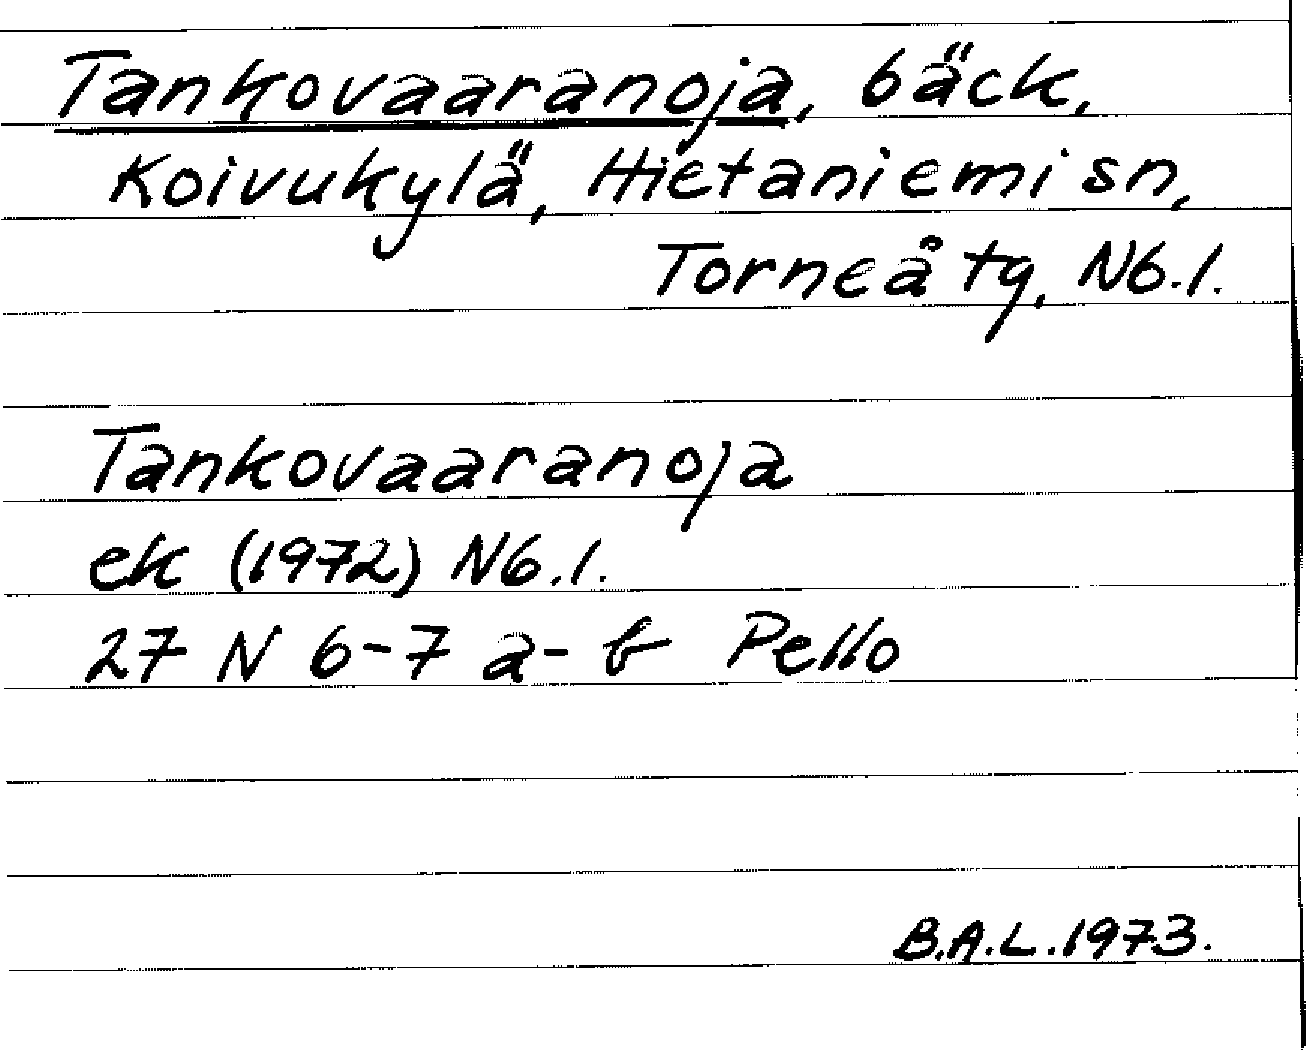 Tankovaaranoja, bäck,
Koivukylä, Hietaniemi sn,
Torneå tg, Nb.l.
Tankovaaranoja
ek (1972) Nb.l.
27 N 6-7 a-b Pello
B.A.L.1973.